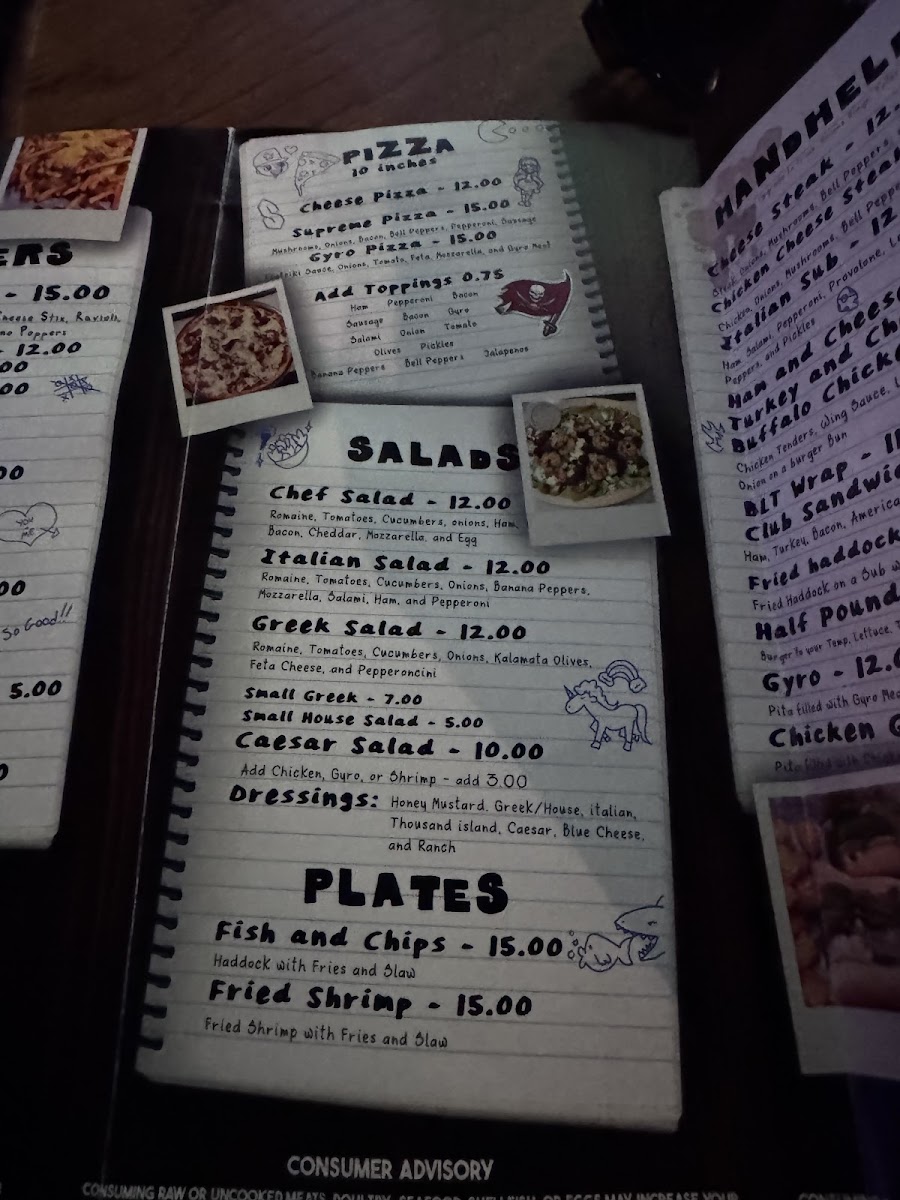 ERS
- 15.00
Cheese Stix, Ravioli,
Poppers
- 12.00
00
00
00
YOU
ME
00
So Good!!
5.00
PIZZA
10 inches
Cheese Pizza - 12.00
Supreme Pizza - 15.00
Mushrooms, Onions, Bacon, Bell Peppers, Pepperoni, Sausage
Gyro Pizza - 15.00
Sauce, Onions, Tomato, Feta, Mozzarella, and Gyro Meat
Add Toppings 0.75
Ham Pepperoni Bacon
Sausage Bacon Gyro
Salami Onion Tomato
Olives Pickles
Banana Peppers Bell Peppers Jalapenos
SALADS
Chef Salad - 12.00
Romaine, Tomatoes, Cucumbers, onions, Ham,
Bacon, Cheddar, Mozzarella, and Egg
Italian Salad - 12.00
Romaine, Tomatoes, Cucumbers, Onions, Banana Peppers,
Mozzarella, Salami, Ham, and Pepperoni
Greek Salad - 12.00
Romaine, Tomatoes, Cucumbers, Onions, Kalamata Olives,
Feta Cheese, and Pepperoncini
Small Greek - 7.00
Small House Salad - 5.00
Caesar Salad - 10.00
Add Chicken, Gyro, or Shrimp - add 3.00
Dressings: Honey Mustard. Greek/House, italian,
Thousand island, Caesar, Blue Cheese,
and Ranch
PLATES
Fish and Chips - 15.00
Haddock with Fries and Slaw
Fried Shrimp - 15.00
Fried Shrimp with Fries and Slaw
CONSUMER ADVISORY
CONSUMING RAW OR UNCOOKED MEATS, POULTRY, SEAFOOD, SHELLFISH, OR EGGS MAY INCREASE YOUR
HANDHEL
Cheese Steak - 12.
Steak, Onions, Mushrooms, Bell Peppers
Chicken Cheese Steak
Chicken, Onions, Mushrooms, Bell Peppe
Italian Sub - 12
Ham Salami, Pepperoni, Provolone,
Peppers, and Pickles
Ham and Cheese
Turkey and Ch
Buffalo Chick
Chicken Tenders, Wing Sauce,
Onion on a burger Bun
BLT Wrap -
Club Sandwi
Ham, Turkey, Bacon, America
Fried haddock
Fried Haddock on a Sub
Half Pound
Burger to your Temp, Lettuce,
Gyro - 12.0
Pita filled with Gyro Mea
Chicken G
Pita filled with